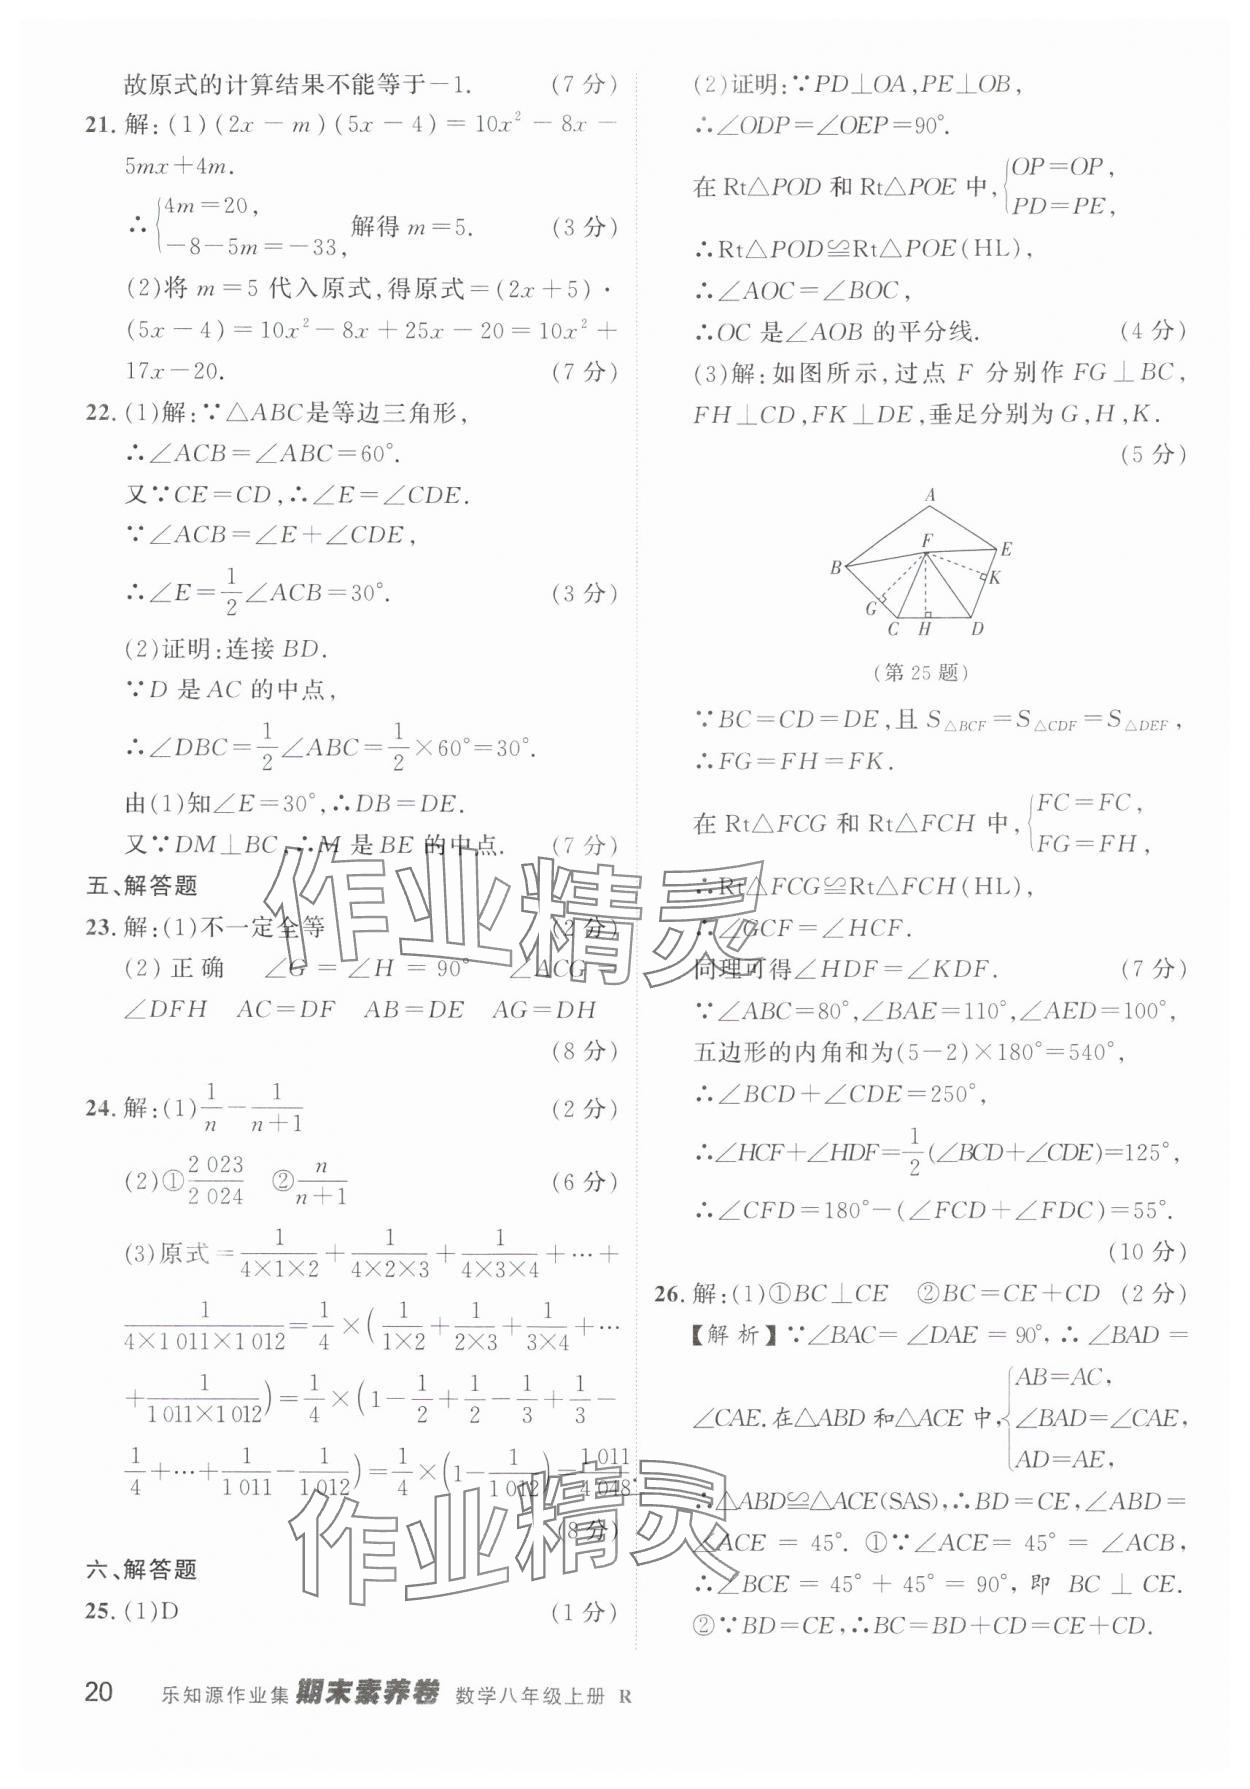 故原式的计算结果不能等于－1. (7 分)
21. 解:(1)(2x－m)(5x－4)＝10x²－8x－
5mx＋4m.
∴{4m＝20, －8－5m＝－33, 解得 m＝5. (3 分)
(2)将 m＝5 代入原式,得原式＝(2x＋5)·
(5x－4)＝10x²－8x＋25x－20＝10x²＋
17x－20. (7 分)
22. (1)解:∵△ABC是等边三角形,
∴∠ACB＝∠ABC＝60°.
又∵CE＝CD,∴∠E＝∠CDE.
∵∠ACB＝∠E＋∠CDE,
∴∠E＝1/2∠ACB＝30°. (3 分)
(2)证明:连接 BD.
∵D 是 AC 的中点,
∴∠DBC＝1/2∠ABC＝1/2×60°＝30°.
由(1)知∠E＝30°,∴DB＝DE.
又∵DM⊥BC,∴M 是 BE 的中点. (7 分)
五、解答题
23. 解:(1)不一定全等 (2 分)
(2)正确 ∠G＝∠H＝90° ∠ACG
∠DFH AC＝DF AB＝DE AG＝DH
(8 分)
24. 解:(1)1/n－1/(n＋1) (2 分)
(2)①2 023/2 024 ②n/(n＋1) (6 分)
(3)原式＝1/(4×1×2)＋1/(4×2×3)＋1/(4×3×4)＋…＋
1/(4×1 011×1 012)＝1/4×(1/(1×2)＋1/(2×3)＋1/(3×4)＋…
＋1/(1 011×1 012))＝1/4×(1－1/2＋1/2－1/3＋1/3－
1/4＋…＋1/1 011－1/1 012)＝1/4×(1－1/1 012)＝1 011/4 048.
(8 分)
六、解答题
25. (1)D (1 分)
(2)证明:∵PD⊥OA,PE⊥OB,
∴∠ODP＝∠OEP＝90°.
在 Rt△POD 和 Rt△POE 中,{OP＝OP, PD＝PE,
∴Rt△POD≌Rt△POE(HL),
∴∠AOC＝∠BOC,
∴OC 是∠AOB 的平分线. (4 分)
(3)解:如图所示,过点 F 分别作 FG⊥BC,
FH⊥CD,FK⊥DE,垂足分别为 G,H,K.
(5 分)
A
F
E
B
K
G
C H D
(第 25 题)
∵BC＝CD＝DE,且 S△BCF＝S△CDF＝S△DEF,
∴FG＝FH＝FK.
在 Rt△FCG 和 Rt△FCH 中,{FC＝FC, FG＝FH,
∴Rt△FCG≌Rt△FCH(HL),
∴∠GCF＝∠HCF.
同理可得∠HDF＝∠KDF. (7 分)
∵∠ABC＝80°,∠BAE＝110°,∠AED＝100°,
五边形的内角和为(5－2)×180°＝540°,
∴∠BCD＋∠CDE＝250°,
∴∠HCF＋∠HDF＝1/2(∠BCD＋∠CDE)＝125°,
∴∠CFD＝180°－(∠FCD＋∠FDC)＝55°.
(10 分)
26. 解:(1)①BC⊥CE ②BC＝CE＋CD (2 分)
【解析】∵∠BAC＝∠DAE＝90°,∴∠BAD＝
∠CAE.在△ABD 和△ACE 中,{AB＝AC, ∠BAD＝∠CAE, AD＝AE,
∴△ABD≌△ACE(SAS),∴BD＝CE,∠ABD＝
∠ACE＝45°. ①∵∠ACE＝45°＝∠ACB,
∴∠BCE＝45°＋45°＝90°,即 BC⊥CE.
②∵BD＝CE,∴BC＝BD＋CD＝CE＋CD.
20 乐知源作业集 期末素养卷 数学八年级上册 R
作业精灵
作业精灵